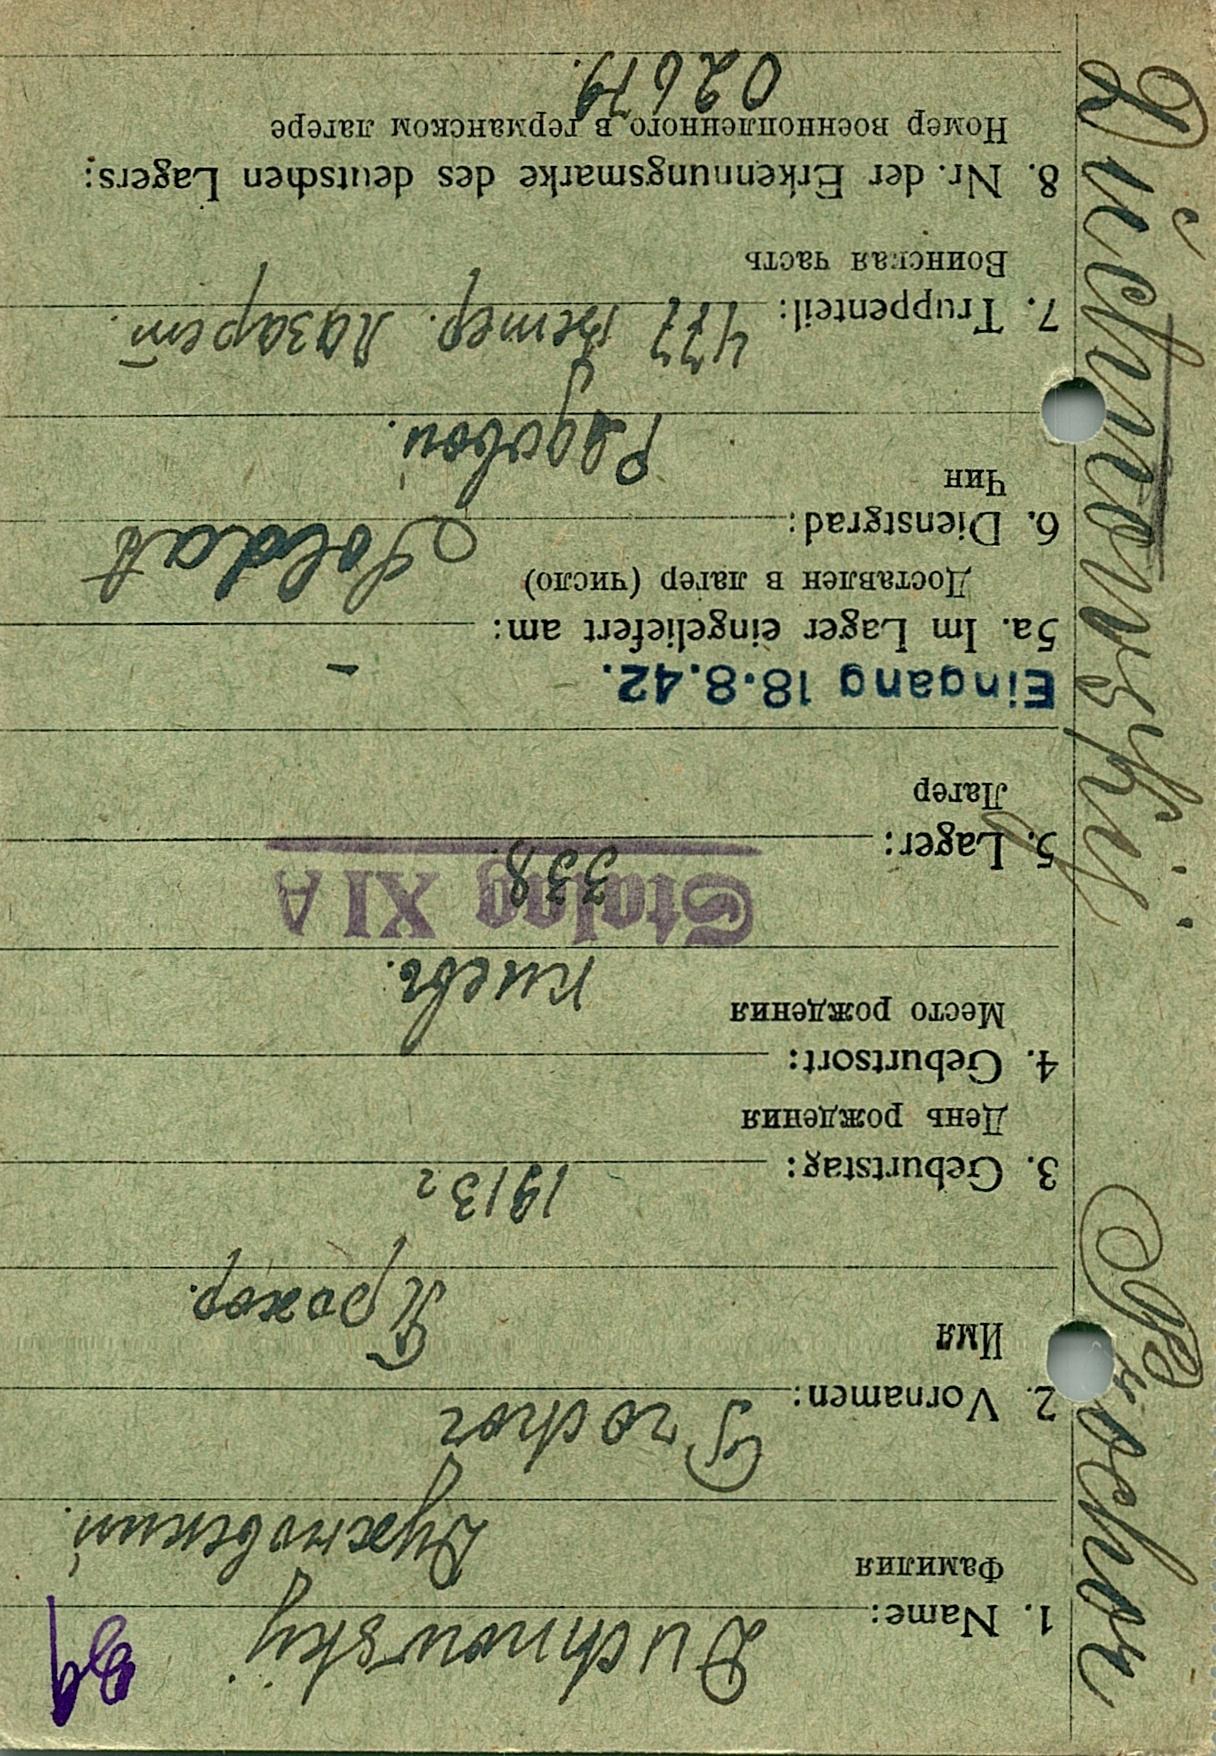 Duchnowskij Prochor
1. Name: Duchnowskij
Фамилия Духновский.
2. Vornamen: Prochor
Имя Прохор.
3. Geburtstag: 1913 г
День рождения
4. Geburtsort:
Место рождения Киевъ.
Stalag XI A
5. Lager: 338.
Лагер
Eingang 18.8.42. –
5a. Im Lager eingeliefert am:
Доставлен в лагер (число)
6. Dienstgrad: Soldat
Чин Рядовой.
7. Truppenteil: 477 Ветер. лазарет.
Воинская часть
8. Nr. der Erkennungsmarke des deutschen Lagers:
Номер военнопленного в германском лагере
02679.